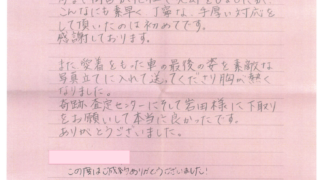 こんなにも素早く丁寧な、手厚い対応をして頂いたのは初めてです。
感謝しております。
また愛着をもった車の最後の姿を素敵な
写真立てに入れて送ってくださり胸が熱く
なりました。
奇跡査定センターにそして岩田様に下取り
をお願いして本当に良かったです。
ありがとうございました。
この度はご成約ありがとうございました!